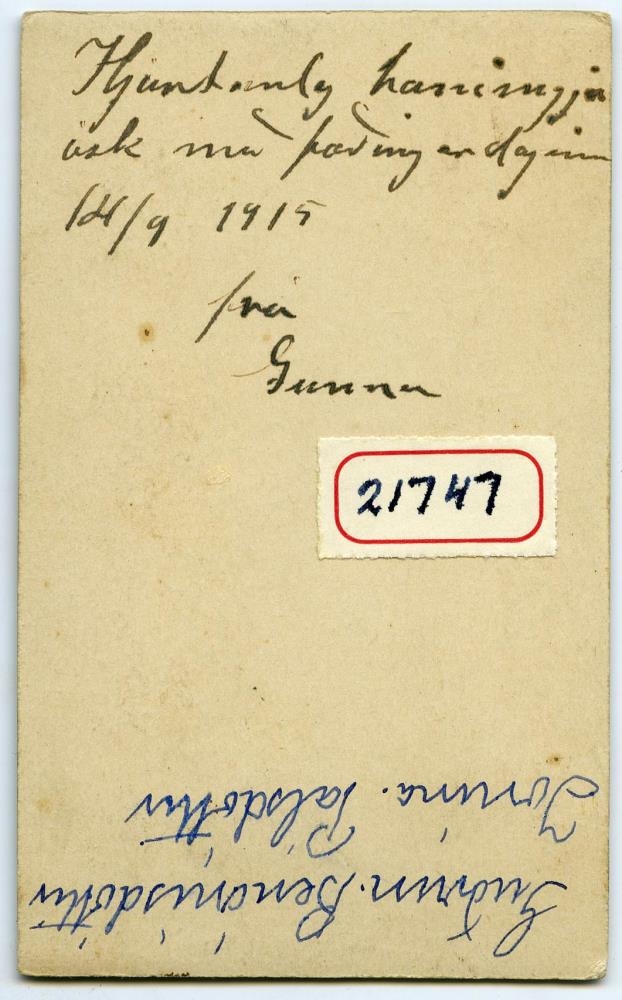 Hjartanleg hamingju
ósk með fæðingardaginn
14/9 1915
frá
Gunnu
21747
Guðrún. Benónýsdóttir
Jórunn. Pálsdóttir